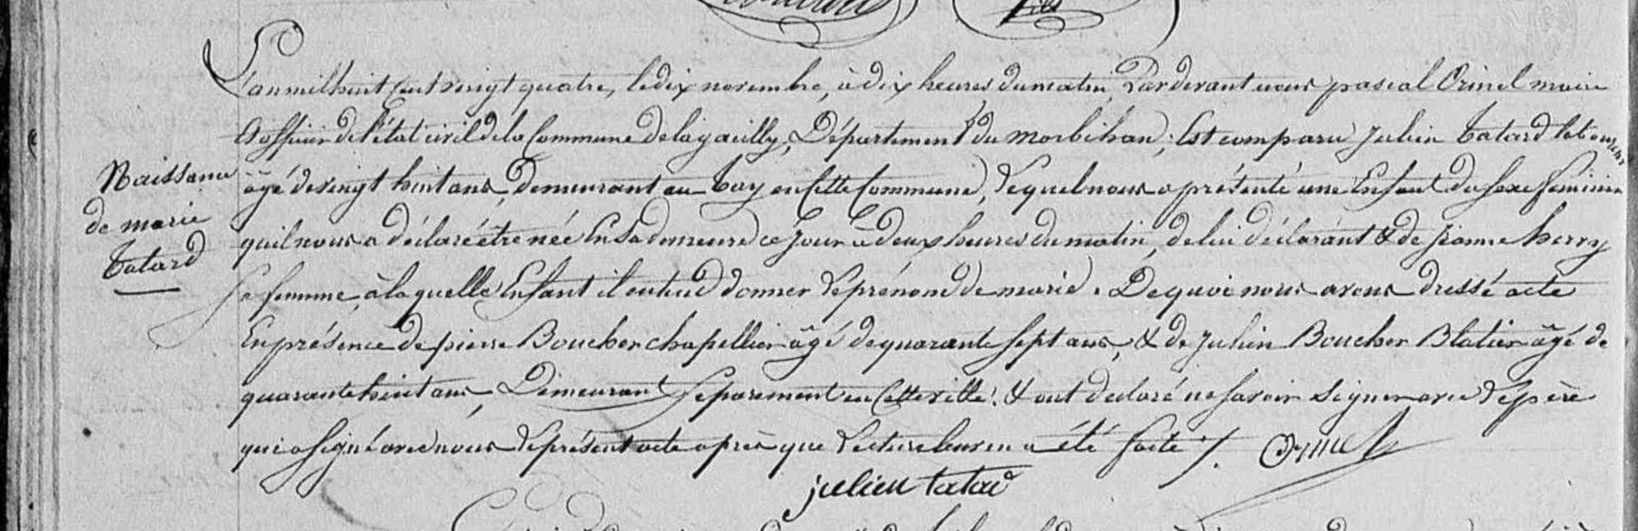 L'an mil huit Cent vingt quatre, le dix novembre, à dix heures du matin, Pardevant nous pascal Orinel maire
& officier de l'état civil de la Commune de la gacilly, Département du morbihan; Est comparu Julien Tatard
Naissance
de marie
Tatard
âgé de vingt huit ans, Demeurant au Tay en Cette Commune, lequel nous a présenté une Enfant du sexe feminin
qu'il nous a déclaré être née En sa demeure ce jour à deux heures du matin, de lui déclarant & de Jeanne herry
sa femme, à laquelle Enfant il entend donner le prénom de marie. De quoi nous avons dressé acte
En présence de pierre Boucher chapellier âgé de quarante sept ans, & de Julien Boucher Blatier âgé de
quarante huit ans, Demeurant séparement en Cette ville. & ont déclaré ne savoir signer avec le père
qui a signé avec nous le présent acte après que lecture leur en a été faite ./.
julien tatar